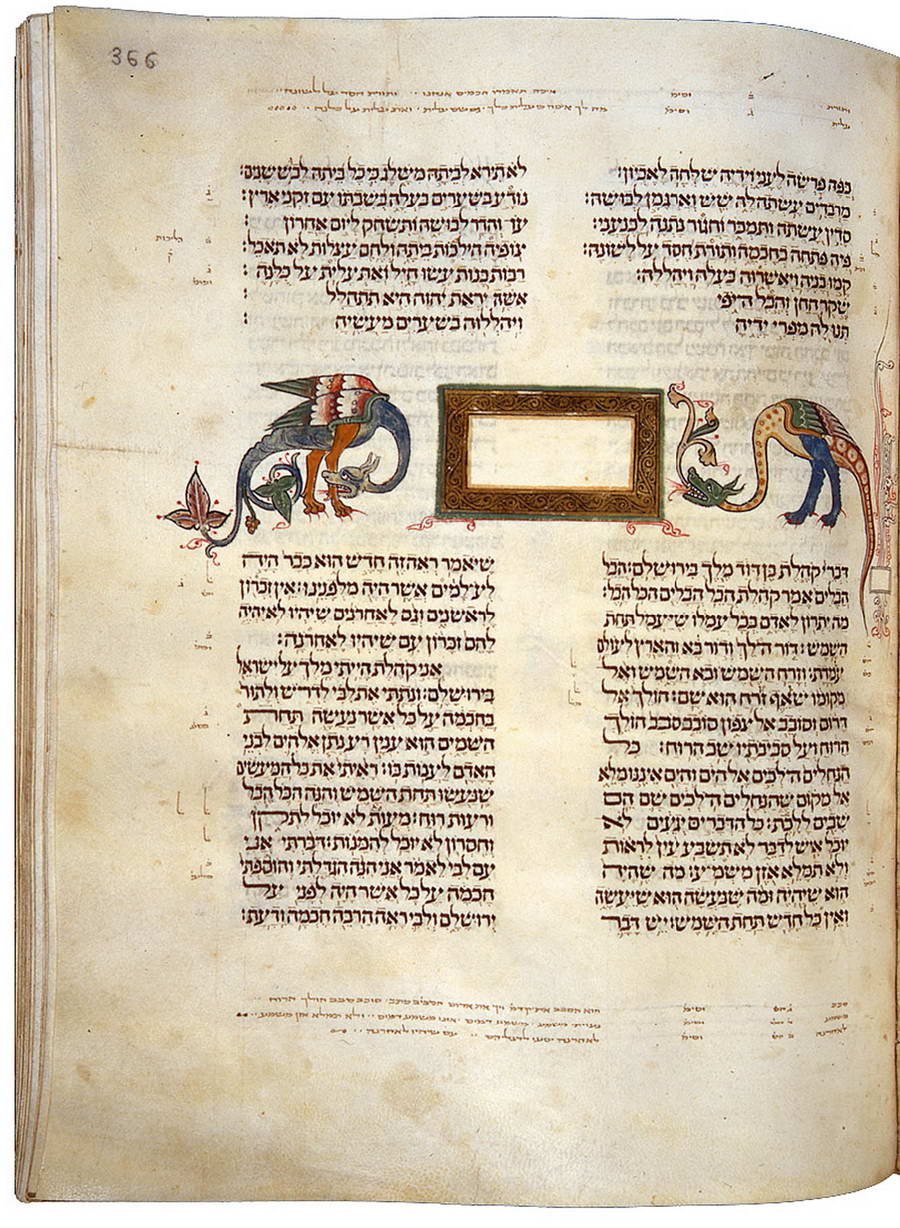 366
כפה פרשה לעני וידיה שלחה לאביון: לא תירא לביתה משלג כי כל ביתה לבש שנים:
מרבדים עשתה לה שש וארגמן לבושה: נודע בשערים בעלה בשבתו עם זקני ארץ:
סדין עשתה ותמכר וחגור נתנה לכנעני: עז והדר לבושה ותשחק ליום אחרון:
פיה פתחה בחכמה ותורת חסד על לשונה: צופיה הילכות ביתה ולחם עצלות לא תאכל:
קמו בניה ויאשרוה בעלה ויהללה: רבות בנות עשו חיל ואת עלית על כלנה:
שקר החן והבל היופי אשה יראת יהוה היא תתהלל:
תנו לה מפרי ידיה ויהללוה בשערים מעשיה:
דברי קהלת בן דוד מלך בירושלם: הבל
הבלים אמר קהלת הבל הבלים הכל הבל:
מה יתרון לאדם בכל עמלו שיעמל תחת
השמש: דור הולך ודור בא והארץ לעולם
עומדת: וזרח השמש ובא השמש ואל
מקומו שואף זרח הוא שם: הולך אל
דרום וסובב אל צפון סובב סובב הולך
הרוח ועל סביבתיו שב הרוח: כל
הנחלים הולכים אל הים והים איננו מלא
אל מקום שהנחלים הולכים שם הם
שבים ללכת: כל הדברים יגעים לא
יוכל איש לדבר לא תשבע עין לראות
ולא תמלא אזן משמוע: מה שהיה
הוא שיהיה ומה שנעשה הוא שייעשה
ואין כל חדש תחת השמש: יש דבר
שיאמר ראה זה חדש הוא כבר היה
לעלמים אשר היה מלפנינו: אין זכרון
לראשנים וגם לאחרנים שיהיו לא יהיה
להם זכרון עם שיהיו לאחרנה:
אני קהלת הייתי מלך על ישראל
בירושלם: ונתתי את לבי לדרוש ולתור
בחכמה על כל אשר נעשה תחת
השמים הוא ענין רע נתן אלהים לבני
האדם לענות בו: ראיתי את כל המעשים
שנעשו תחת השמש והנה הכל הבל
ורעות רוח: מעות לא יוכל לתקן
וחסרון לא יוכל להמנות: דברתי אני
עם לבי לאמר אני הנה הגדלתי והוספתי
חכמה על כל אשר היה לפני על
ירושלם ולבי ראה הרבה חכמה ודעת: